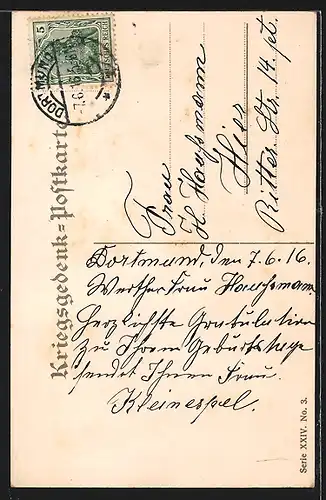 Kriegsgedenk=Postkarte
5
DORTMUND
7.6.16
Frau
H. Hauffmann
Hier
Ritter Str. 14 pt.
Dortmund, den 7.6.16
Werthe Frau
Herzlichste Gratulation
zu Ihrem Geburtstage
sendet Ihnen Frau
Kleinespel.
Serie XXIV. No. 3.